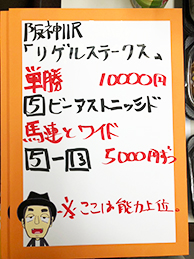 阪神11R
「リゲルステークス」
単勝 10000円
5 ピンアストニッシド
馬連とワイド
5-13 5000円ずつ
※ここは能力上位。